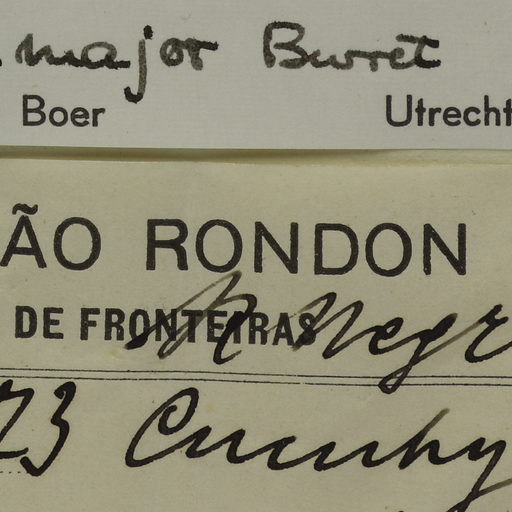 major Burret
Boer Utrecht
ÃO RONDON
DE FRONTEIRAS
R. Negr
73 Cucuhy